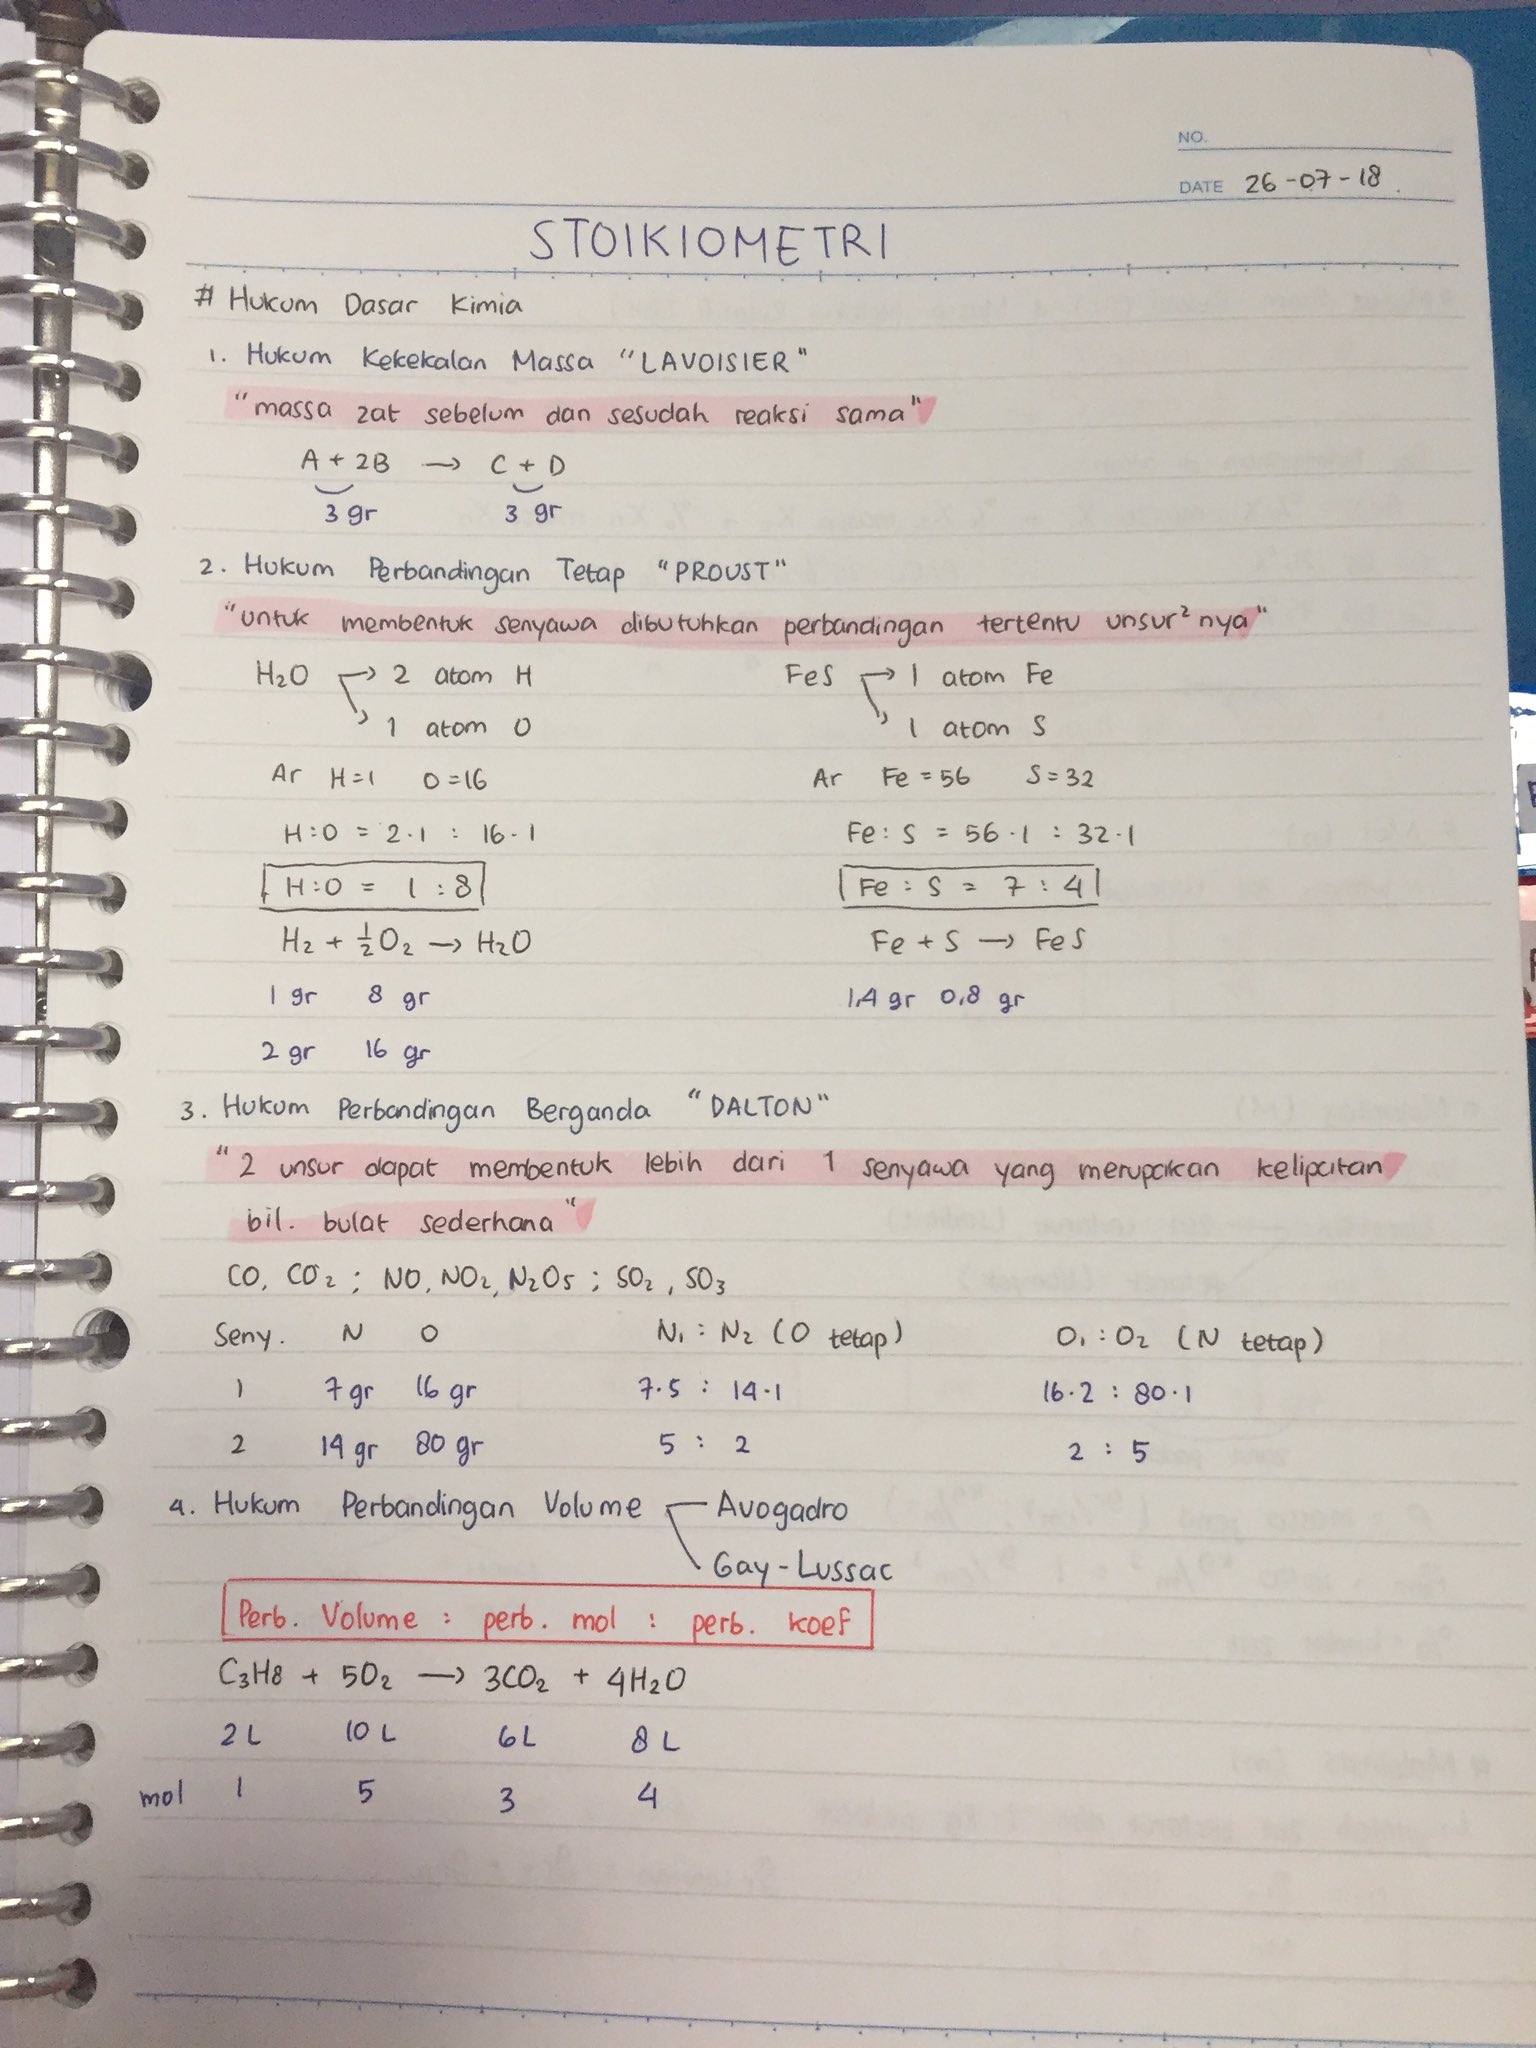 NO.
DATE 26-07-18
STOIKIOMETRI
# Hukum Dasar Kimia
1. Hukum Kekekalan Massa "LAVOISIER"
"massa zat sebelum dan sesudah reaksi sama"
A + 2B → C + D
3 gr 3 gr
2. Hukum Perbandingan Tetap "PROUST"
"untuk membentuk senyawa dibutuhkan perbandingan tertentu unsur² nya"
H₂O → 2 atom H FeS → 1 atom Fe
→ 1 atom O → 1 atom S
Ar H=1 O=16 Ar Fe=56 S=32
H:O = 2·1 : 16·1 Fe:S = 56·1 : 32·1
H:O = 1:8 Fe:S = 7:4
H₂ + ½O₂ → H₂O Fe + S → FeS
1 gr 8 gr 1,4 gr 0,8 gr
2 gr 16 gr
3. Hukum Perbandingan Berganda "DALTON"
"2 unsur dapat membentuk lebih dari 1 senyawa yang merupakan kelipatan
bil. bulat sederhana"
CO, CO₂ ; NO, NO₂, N₂O₅ ; SO₂, SO₃
Seny. N O N₁ : N₂ (O tetap) O₁ : O₂ (N tetap)
1 7 gr 16 gr 7·5 : 14·1 16·2 : 80·1
2 14 gr 80 gr 5 : 2 2 : 5
4. Hukum Perbandingan Volume Avogadro
Gay-Lussac
Perb. Volume : perb. mol : perb. koef
C₃H₈ + 5O₂ → 3CO₂ + 4H₂O
2 L 10 L 6 L 8 L
mol 1 5 3 4